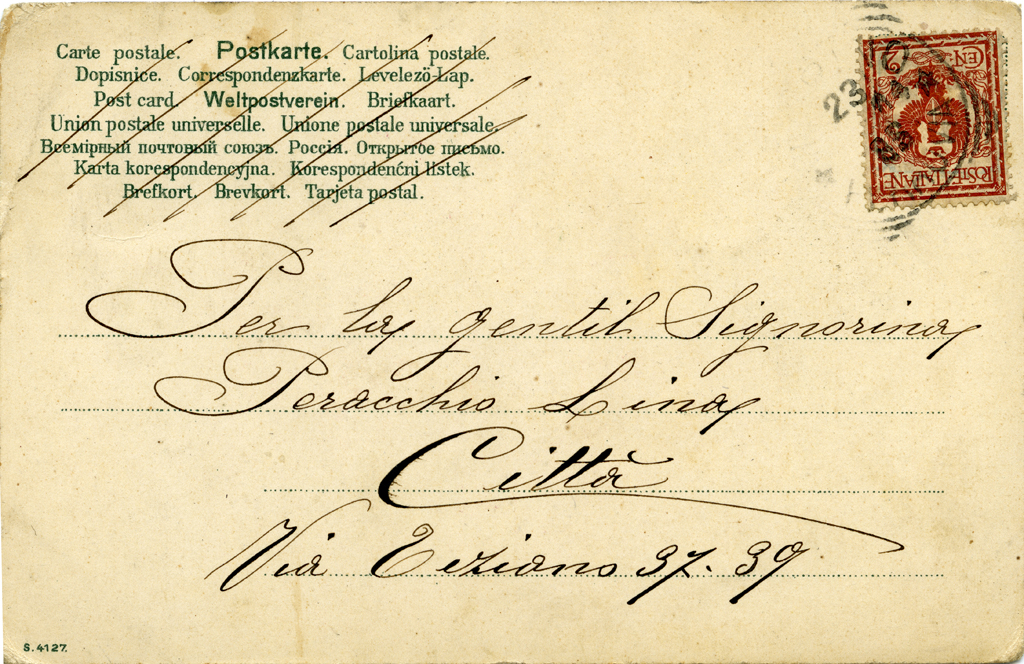 Carte postale. Postkarte. Cartolina postale.
Dopisnice. Correspondenzkarte. Levelező-Lap.
Post card. Weltpostverein. Briefkaart.
Union postale universelle. Unione postale universale.
Всемірный почтовый союзъ. Россія. Открытое письмо.
Karta korespondencyjna. Korespondenčni listek.
Brefkort. Brevkort. Tarjeta postal.
CEN 2
POSTE ITALIANE
23
Per la gentil Signorina
Peracchio Lina
Città
Via 37. 39
S. 4127.